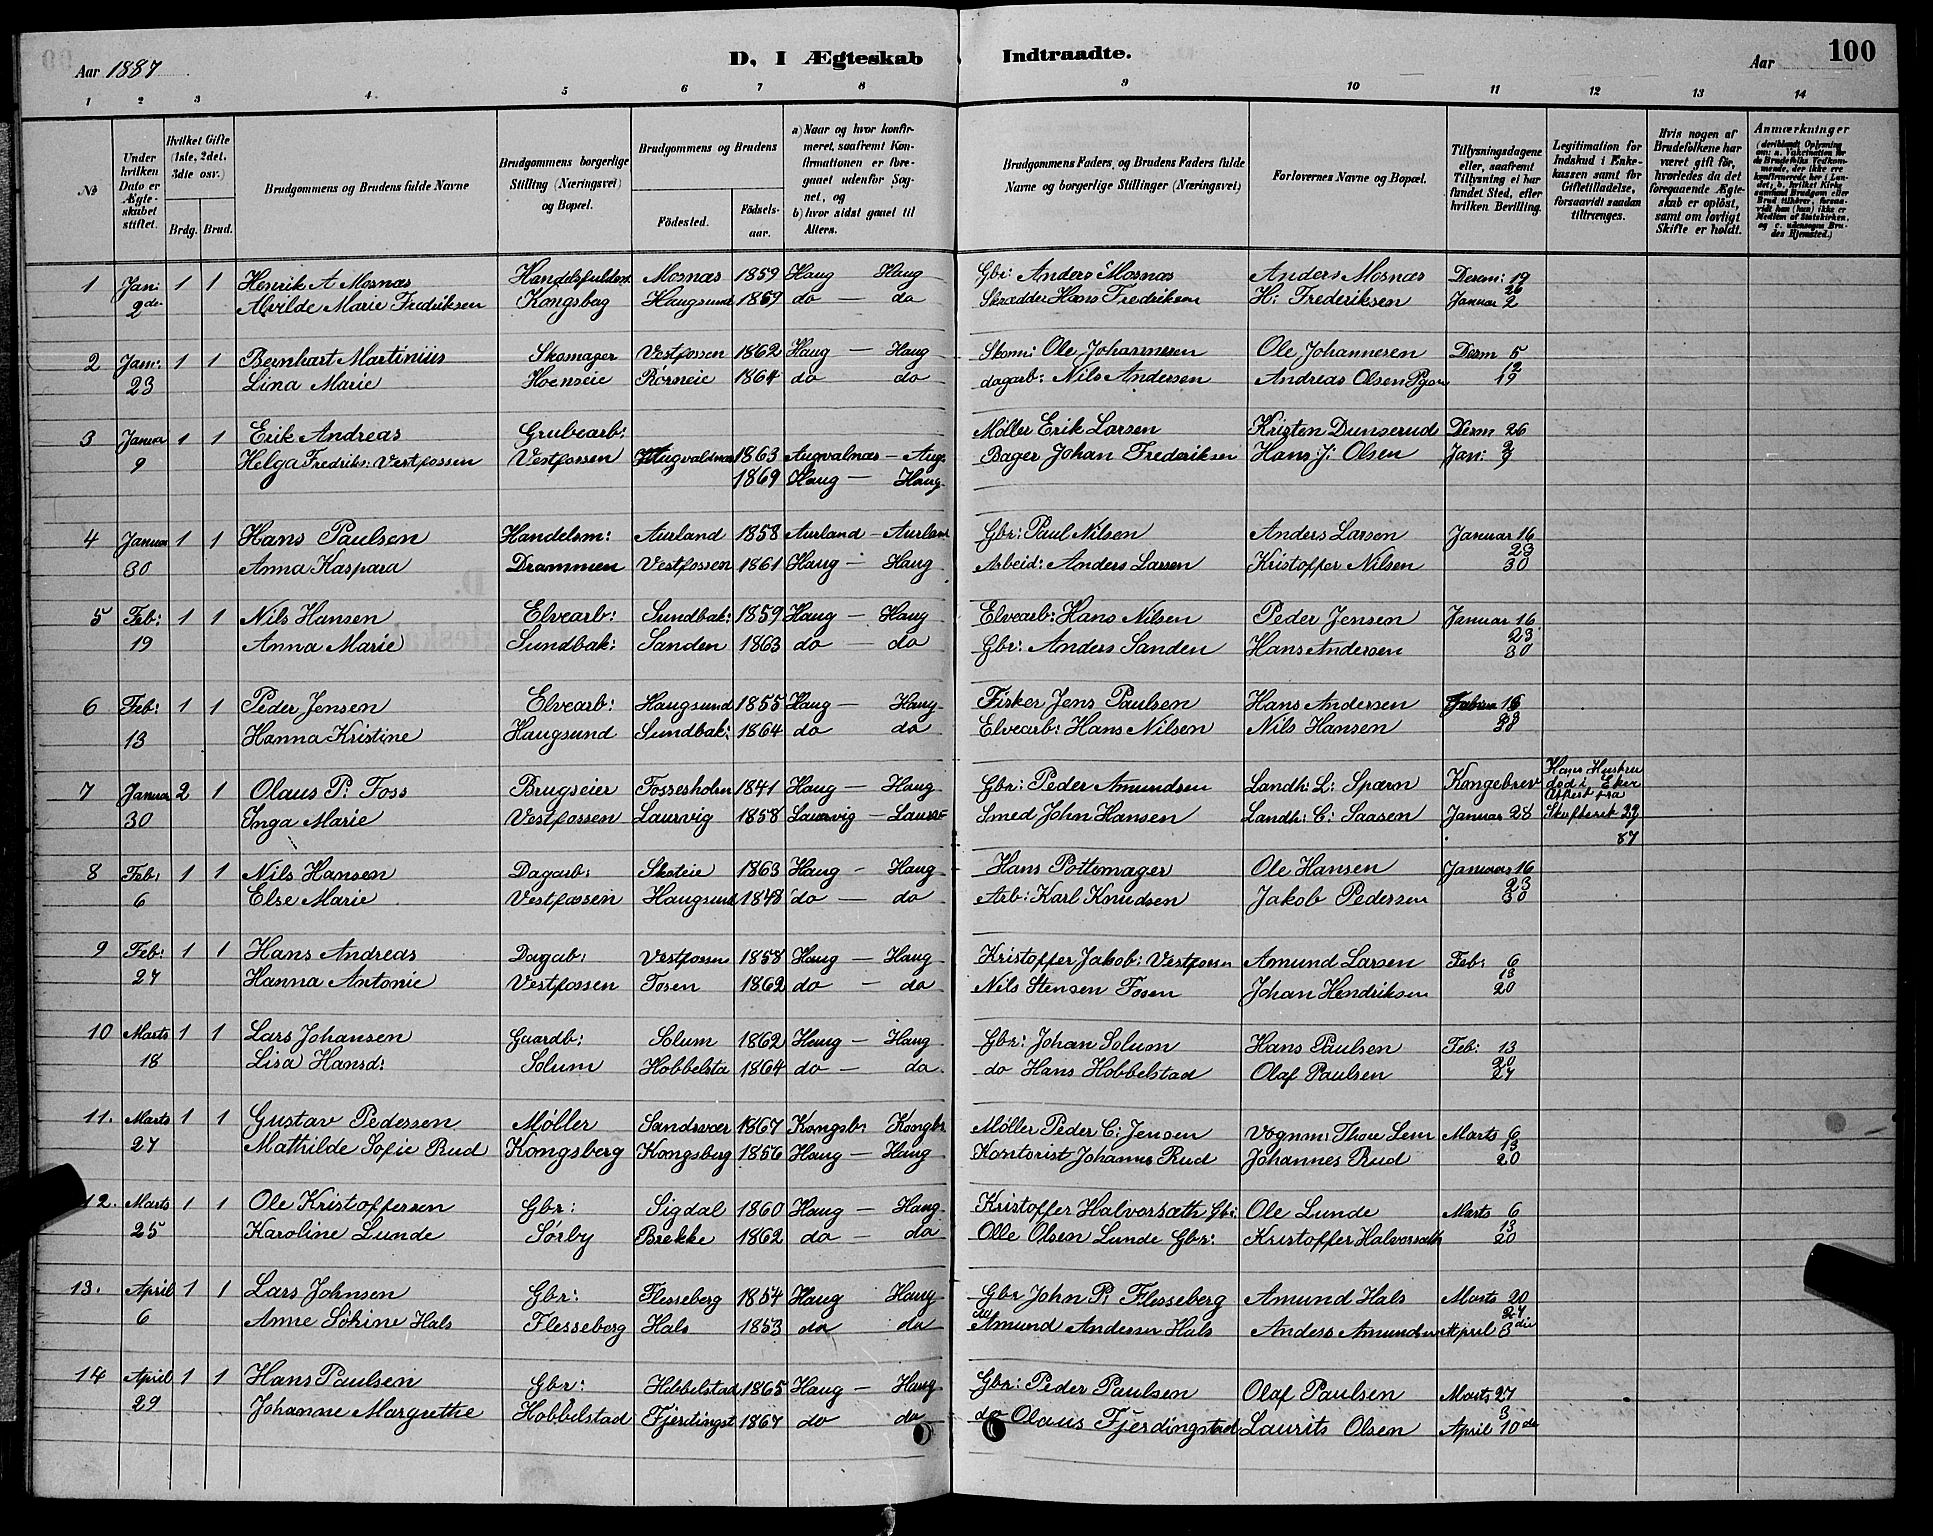 Aar 1887
D, I Ægteskab Indtraadte.
Aar
100
1 2 3 4 5 6 7 8 9 10 11 12 13 14
No
Under hvilken Dato er Ægteskabet stiftet.
Hvilket Gifte (1ste, 2det, 3die osv.)
Brdg. Brud.
Brudgommens og Brudens fulde Navne
Brudgommens borgerlige Stilling (Næringsvei) og Bopæl.
Brudgommens og Brudens
Fødested.
Fødselsaar.
a) Naar og hvor konfirmeret, saafremt Konfirmationen er foregaaet udenfor Sognet, og
b) hvor sidst gaaet til Alters.
Brudgommens Faders, og Brudens Faders fulde Navne og borgerlige Stillinger (Næringsvei)
Forlovernes Navne og Bopæl.
Tillysningsdagene eller, saafremt Tillysning ei har fundet Sted, efter hvilken Bevilling.
Legitimation for Indskud i Enkekassen samt for Giftetilladelse, forsaavidt saadan tiltrænges.
Hvis nogen af Brudefolkene har været gift før, hvorledes da det foregaaende Ægteskab er opløst, samt om lovligt Skifte er holdt.
Anmærkninger
1 Jan: 1 1 Henrik A Mosnæs Handelsfuldm Mosnæs 1859 Haug — Haug Gbr: Anders Mosnæs Anders Mosnæs Decm: 19
26
2de Alvilde Marie Fredriksen Kongsbeg Haugsund 1859 do — do Skrædder Hans Fredriksen H: Frederiksen Januar 2
2 Jan: 1 1 Bernhart Martinius Skomager Vestfossen 1862 Haug — Haug Skom: Ole Johannesen Ole Johannesen Decm 5
12
23 Lina Marie Hoenseie Rørneie 1864 do do dagarb: Nils Andersen Andreas Olsen 19
3 Januar 1 1 Erik Andreas Grubearb: Møller Erik Larsen Kristen Dunserud Decm 26
9 Helga Fredriks: Vestfossen Vestfossen Augvaldnæs 1863 Augvalnæs — Aug. Bager Johan Frederiksen Hans J: Olsen Jan: 2
9
1869 Haug — Haug
4 Januar 1 1 Hans Paulsen Handelsm: Aurland 1858 Aurland — Aurland Gbr: Paul Nilsen Anders Larsen Januar 16
23
30 Anna Kaspara Drammen Vestfossen 1861 Haug — Haug Arbeid: Anders Larsen Kristoffer Nilsen 30
5 Feb: 1 1 Nils Hansen Elvearb: Sundbak: 1859 Haug — Haug Elvearb: Hans Nilsen Peder Jensen Januar 16
23
19 Anna Marie Sundbak: Sanden 1863 do — do Gbr: Anders Sanden Hans Andersen 30
6 Feb: 1 1 Peder Jensen Elvearb: Haugsund 1855 Haug — Haug Fisker Jens Paulsen Hans Andersen 16
13 Hanna Kristine Haugsund Sundbak: 1864 do do Elvearb: Hans Nilsen Nils Hansen
7 Januar 2 1 Olaus P: Foss Brugseier Fossesholm 1841 Haug — Haug Gbr: Peder Amundsen Landh: L: Spærn Kongebrev
Hans Hustru
død i Eker
Attest fra
30 Inga Marie Vestfossen Laurvig 1858 Laurvig — Laurv= Smed John Hansen Landh: C: Saasen Januar 28 Skifteret
87
8 Feb: 1 1 Nils Hansen Dagarb: Skoteie 1863 Haug — Haug Hans Pottemager Ole Hansen Januar 16
23
6 Else Marie Vestfossen Haugsund 1848 do — do Arb: Karl Knudsen Jakob Pedersen 30
9 Feb: 1 1 Hans Andreas Dagab: Vestfossen 1858 Haug — Haug Kristoffer Jakob: Vestfossen Amund Larsen Feb: 6
13
27 Hanna Antonie Vestfossen Fosen 1862 do — do Nils Stensen Fosen Johan Hendriksen 20
10 Marts 1 1 Lars Johansen Guardb: Solum 1862 Haug — Haug Gbr: Johan Solum Hans Paulsen Feb: 13
20
18 Lisa Hansd: Solum Hobbelsta 1864 do — do do Hans Hobbelstad Olaf Paulsen 27
11. Marts 1 1 Gustav Pedersen Møller Sandsvær 1867 Kongsb: Kongbr Møller Peder C: Jensen Vognm: Thore Lem Marts 6
13
27 Mathilde Sofie Rud Kongsberg Kongsberg 1856 Haug — Haug Kontorist Johannes Rud Johannes Rud 20
12. Marts 1 1 Ole Kristoffersen Gbr: Sigdal 1860 Haug — Haug Kristoffer Halvorsæth Gbr: Ole Lunde Marts 6
13
25 Karoline Lunde Sørby Brekke 1862 do — do Olle Olsen Lunde Gbr: Kristoffer Halvorsæth 20
13. April 1 1 Lars Johnsen Gbr: Flesseberg 1854 Haug Haug Gbr John P: Flesseberg Amund Hals Marts 20
27
6 Anne Sørine Hals Flesseberg Hals 1853 do do do Amund Andersen Hals Anders Amundsen April 3die
14 April 1 1 Hans Paulsen Gbr: Hobbelstad 1865 Haug — Haug Gbr: Peder Paulsen Olaf Paulsen Marts 27
3
29 Johanne Margrethe Hobbelstad Fjerdingst 1867 do do do Olaus Fjerdingstad Laurits Olsen April 10de